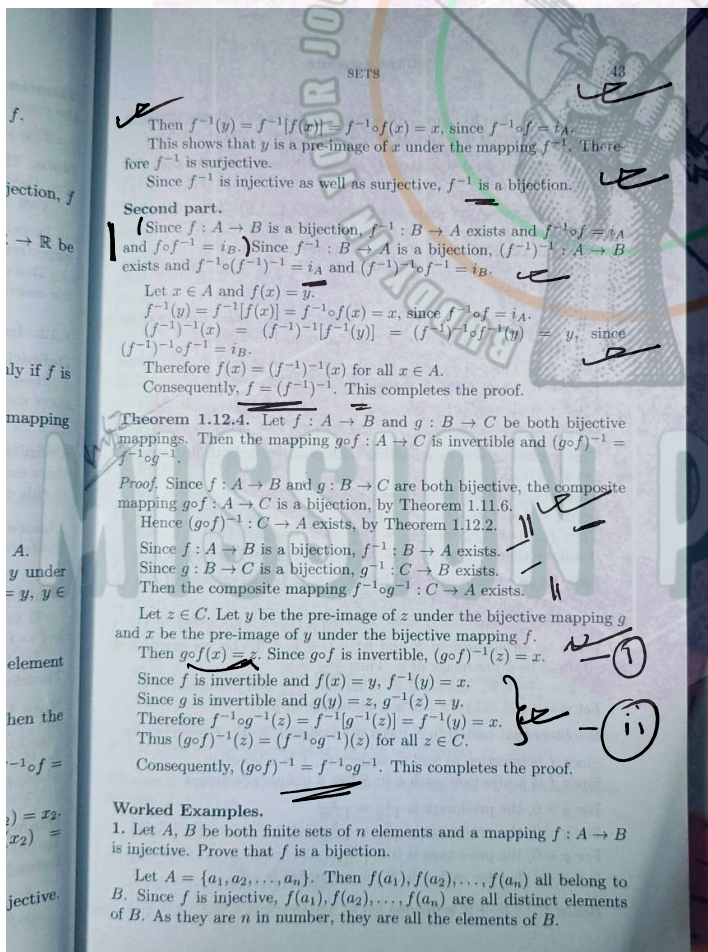 SETS 43
f.
Then f⁻¹(y) = f⁻¹[f(x)] = f⁻¹∘f(x) = x, since f⁻¹∘f = i_A.
This shows that y is a pre-image of x under the mapping f⁻¹. There-
fore f⁻¹ is surjective.
jection, f
Since f⁻¹ is injective as well as surjective, f⁻¹ is a bijection.
Second part.
Since f : A → B is a bijection, f⁻¹ : B → A exists and f⁻¹∘f = i_A
→ ℝ be
and f∘f⁻¹ = i_B. Since f⁻¹ : B → A is a bijection, (f⁻¹)⁻¹ : A → B
exists and f⁻¹∘(f⁻¹)⁻¹ = i_A and (f⁻¹)⁻¹∘f⁻¹ = i_B.
Let x ∈ A and f(x) = y.
f⁻¹(y) = f⁻¹[f(x)] = f⁻¹∘f(x) = x, since f⁻¹∘f = i_A.
(f⁻¹)⁻¹(x) = (f⁻¹)⁻¹[f⁻¹(y)] = (f⁻¹)⁻¹∘f⁻¹(y) = y, since
(f⁻¹)⁻¹∘f⁻¹ = i_B.
ly if f is
Therefore f(x) = (f⁻¹)⁻¹(x) for all x ∈ A.
Consequently, f = (f⁻¹)⁻¹. This completes the proof.
mapping
Theorem 1.12.4. Let f : A → B and g : B → C be both bijective
mappings. Then the mapping g∘f : A → C is invertible and (g∘f)⁻¹ =
f⁻¹∘g⁻¹.
Proof. Since f : A → B and g : B → C are both bijective, the composite
mapping g∘f : A → C is a bijection, by Theorem 1.11.6.
Hence (g∘f)⁻¹ : C → A exists, by Theorem 1.12.2.
A.
Since f : A → B is a bijection, f⁻¹ : B → A exists.
y under
Since g : B → C is a bijection, g⁻¹ : C → B exists.
= y, y ∈
Then the composite mapping f⁻¹∘g⁻¹ : C → A exists.
Let z ∈ C. Let y be the pre-image of z under the bijective mapping g
and x be the pre-image of y under the bijective mapping f.
element
Then g∘f(x) = z. Since g∘f is invertible, (g∘f)⁻¹(z) = x. – i
Since f is invertible and f(x) = y, f⁻¹(y) = x.
Since g is invertible and g(y) = z, g⁻¹(z) = y.
hen the
Therefore f⁻¹∘g⁻¹(z) = f⁻¹[g⁻¹(z)] = f⁻¹(y) = x. – ii
Thus (g∘f)⁻¹(z) = (f⁻¹∘g⁻¹)(z) for all z ∈ C.
⁻¹∘f =
Consequently, (g∘f)⁻¹ = f⁻¹∘g⁻¹. This completes the proof.
) = x₂.
Worked Examples.
(x₂) =
1. Let A, B be both finite sets of n elements and a mapping f : A → B
is injective. Prove that f is a bijection.
jective.
Let A = {a₁, a₂, . . . , aₙ}. Then f(a₁), f(a₂), . . . , f(aₙ) all belong to
B. Since f is injective, f(a₁), f(a₂), . . . , f(aₙ) are all distinct elements
of B. As they are n in number, they are all the elements of B.
MISSION P